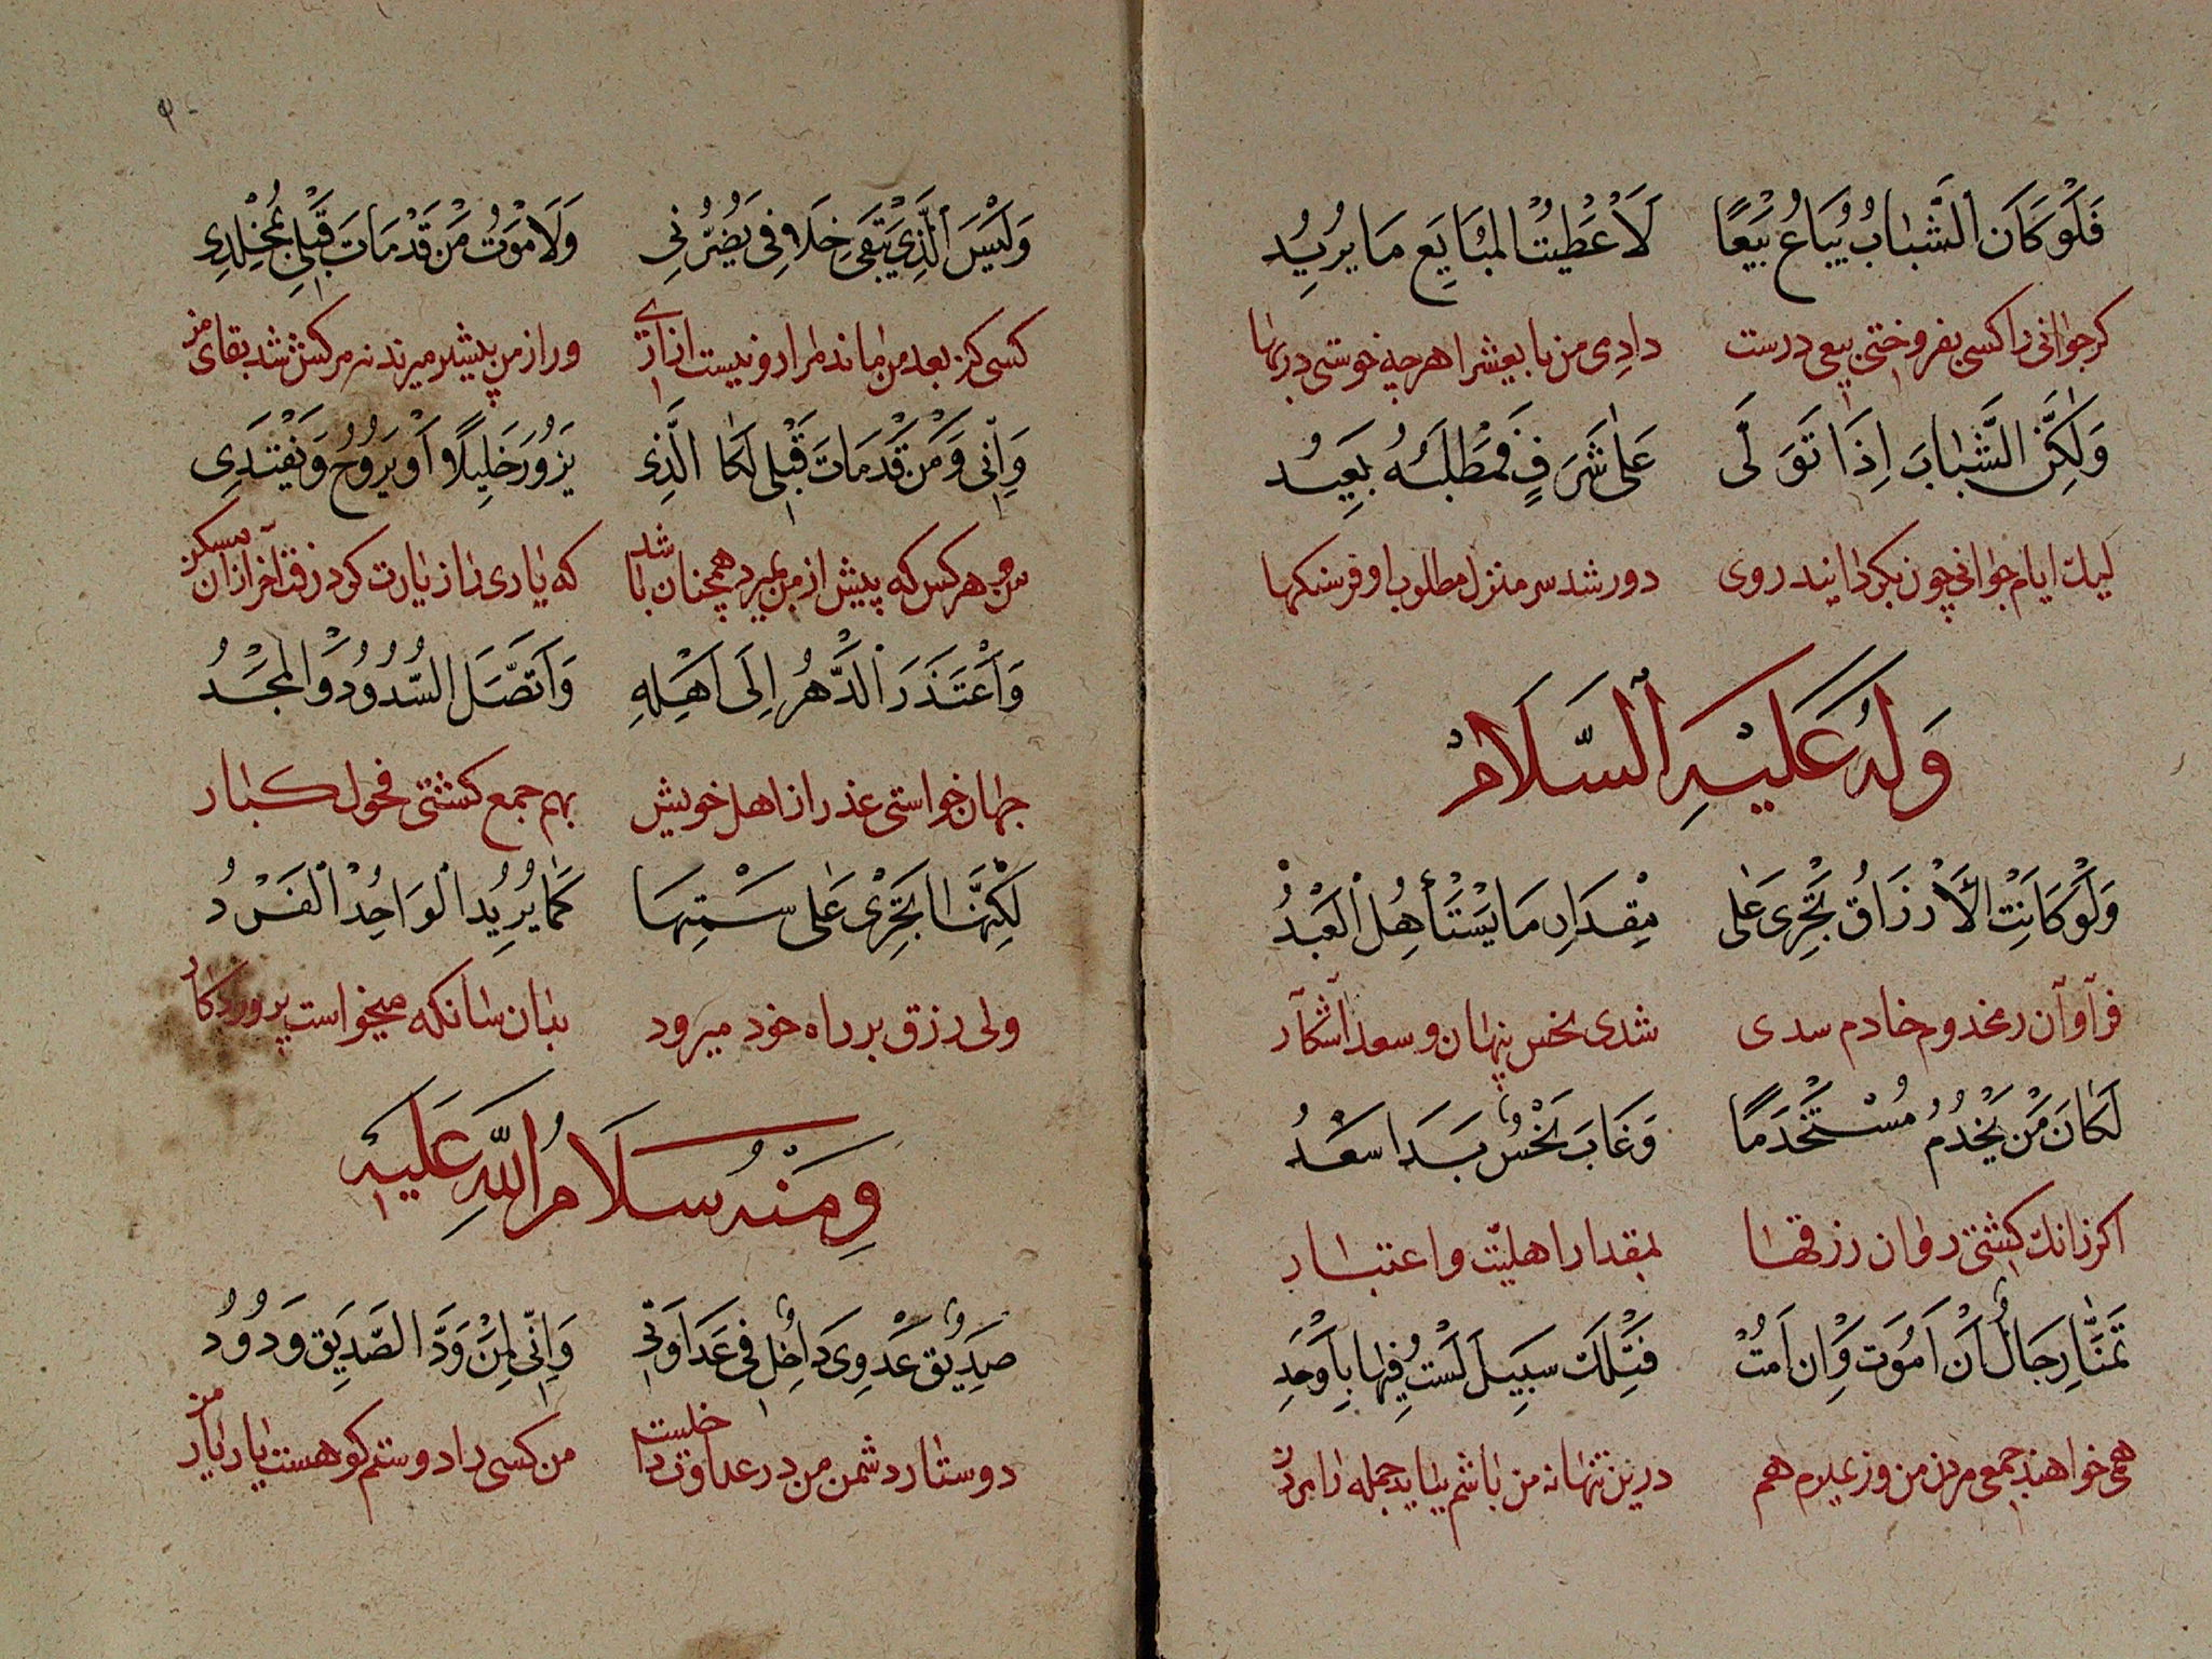 فَلَوْ كَانَ الشَّبَابُ يُبَاعُ بَيْعًا لَأَعْطَيْتُ الْمُبَايِعَ مَا يُرِيدُ
كر جوانی را کسی بفروختی بیعی درست دادمی من بایعش را هر چه خوشی در بها
وَلٰكِنَّ الشَّبَابَ اِذَا تَوَلَّى عَلٰى شَرَفٍ فَمَطْلَبُهُ بَعِيدُ
لیك ایام جوانی چون بکرداند روی دور شد سر منزل مطلوب او فرسنکها
وَلَهُ عَلَيْهِ السَّلَامْ
وَلَوْ كَانَتْ الْأَرْزَاقُ تَجْرِى عَلٰى مِقْدَارِ مَا يَسْتَأْهِلُ الْعَبْدُ
فرآوآن ز مخدوم خادم سدی شدی نحس پنهان و سعد آشکار
لَكَانَ مَنْ يَخْدُمُ مُسْتَخْدَمًا وَغَابَ نَحْسٌ بَدَا سَعْدُ
اکر زانك کشتی روان رزقها بمقدار اهلیّت و اعتبار
تَمَنَّا رِجَالٌ أَنْ أَمُوَتَ وَاِنْ اَمُتْ فَتِلْكَ سَبِيلٌ لَسْتُ فِيهَا بِأَوْحَدِ
همی خواهند جمعی مرک من ور بمیرم هم درین تنها نه من باشم بباید جمله را مردن
وَلَيْسَ الَّذِى يَبْقَى خِلَافِى يَضُرُّنِى وَلَا مَوْتُ مَنْ قَدْ مَاتَ قَبْلِى بِمُخْلِدِى
کسی کز بعد من ماند مرا زو نیست ازاری ور از من پیشتر میرند نه مرکش شد بقای من
وَاِنِّى وَمَنْ قَدْ مَاتَ قَبْلِى لَكَا الَّذِى يَزُورُ خَلِيلًا اَوْ يَرُوحُ وَيَفْتَدِى
من و هر کس که پیش از من بمیرد همچنان باشد که یاری را زیارت کرد و رفت آخر ازان مسکن
وَاَعْتَذَرَ الدَّهْرُ اِلَى اَهْلِهِ وَاَتَّصَلَ السُّدُودُ وَالْمَجْدُ
جهان خواستی عذر از اهل خویش بهم جمع کشتی فحول کبار
لَكِنَّهَا تَجْرِى عَلٰى سَمْتِهَا كَمَا يُرِيدُ الْوَاحِدُ الْفَرْدُ
ولی رزق بر راه خود میرود بدان سانکه میخواست پروردکار
وَمِنْهُ سَلَامُ اللّٰهِ عَلَيْهِ
صَدِيقُ عَدُوِّى دَاخِلٌ فِى عَدَاوَتِى وَاِنِّى لِمَنْ وَدَّ الصَّدِيقَ وَدُودُ
دوستدار دشمن من در عداوت داخلست من کسی را دوستم کو هست یار یار من